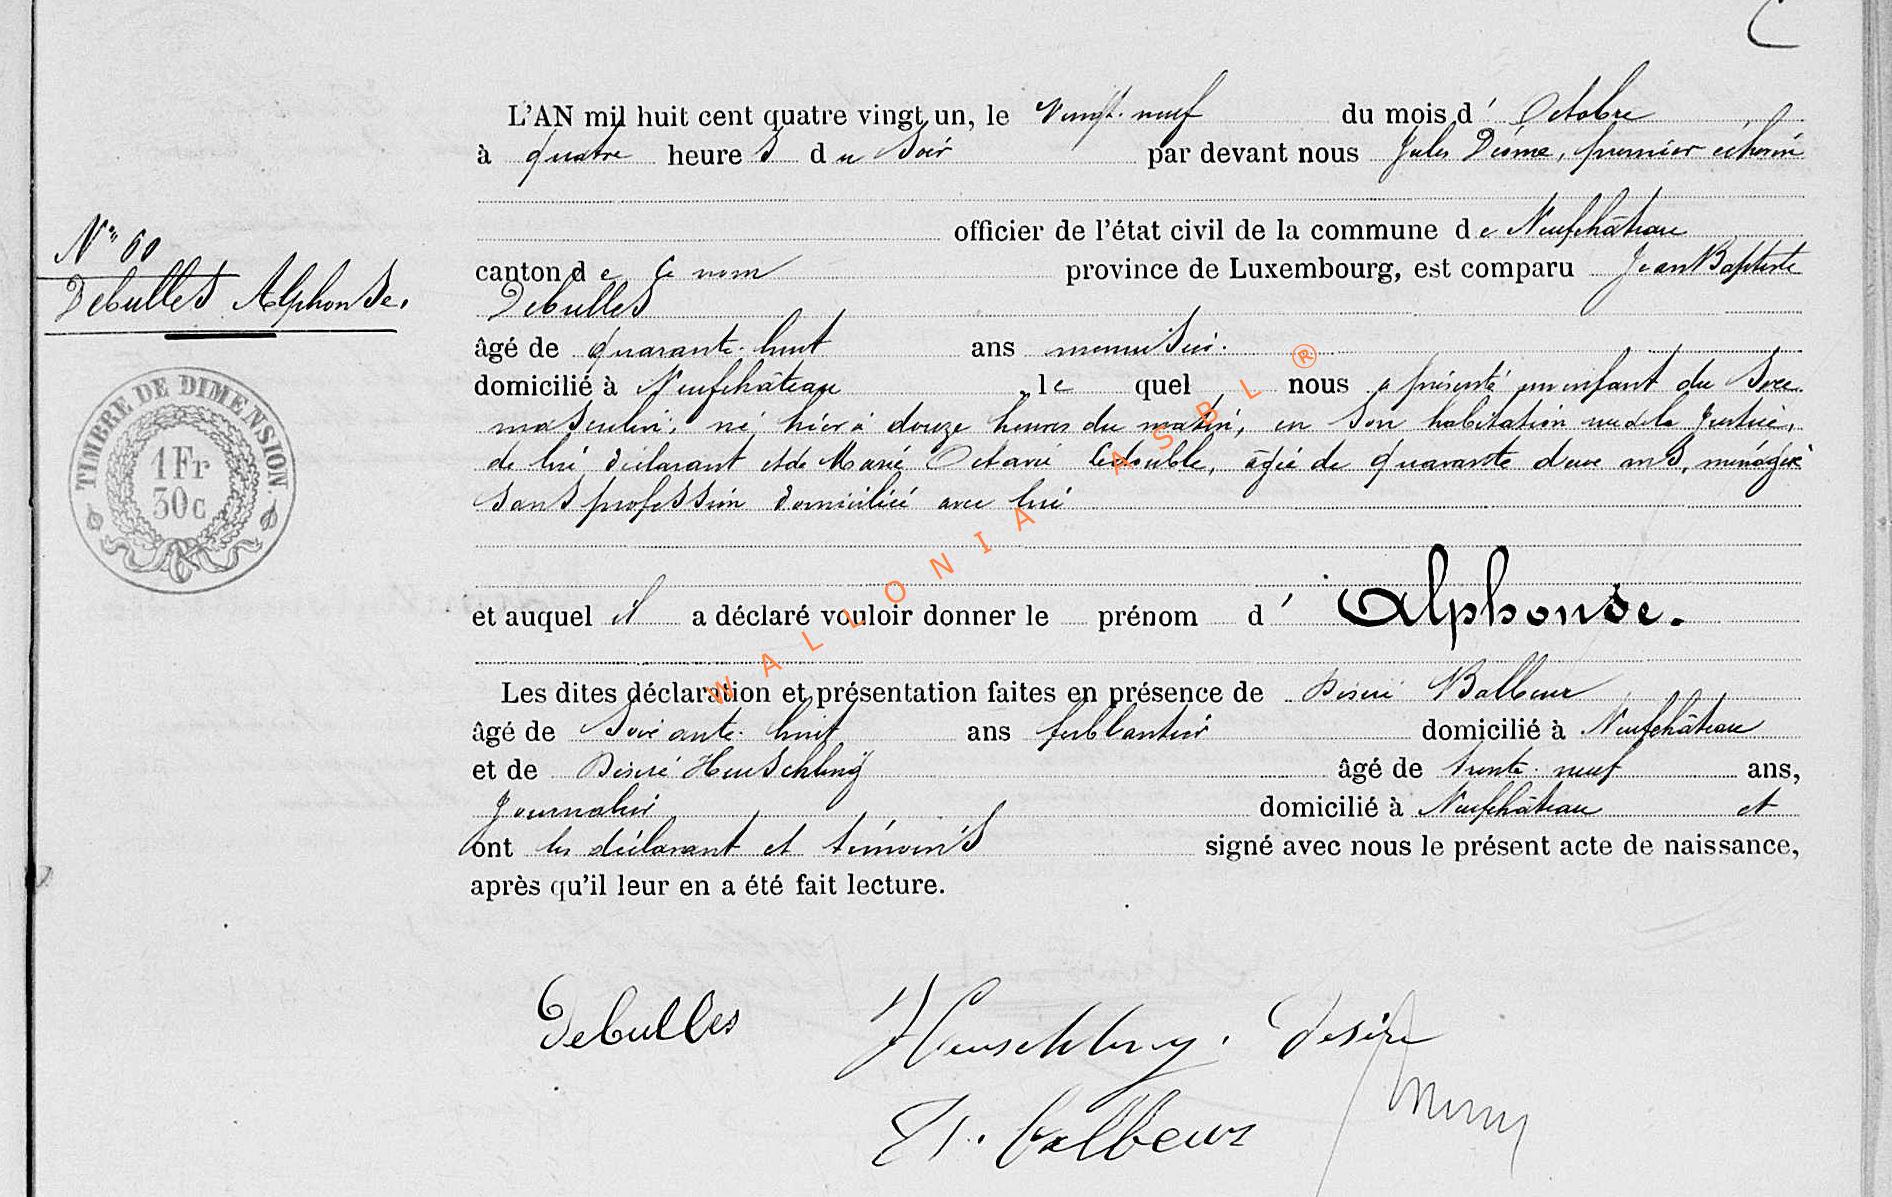 L'AN mil huit cent quatre vingt un, le Vingt-neuf du mois d' Octobre
à quatre heures du soir par devant nous Jules premier échevin
officier de l'état civil de la commune de Neufchâteau
N° 60
canton de ce nom province de Luxembourg, est comparu Jean Baptiste
Debulles Alphonse.
Debulles
âgé de quarante-huit ans menuisier.
domicilié à Neufchâteau, le quel nous a présenté un enfant du sexe
masculin, né hier à douze heures du matin, en son habitation rue de la Justice,
de lui déclarant et de Marie Octavie Ledouble, âgée de quarante deux ans, ménagère
sans profession domiciliée avec lui
TIMBRE DE DIMENSION.
1Fr
30c
et auquel il a déclaré vouloir donner le prénom d' Alphonse.
Les dites déclaration et présentation faites en présence de Désiré Balbeur
âgé de soixante-huit ans ferblantier domicilié à Neufchâteau
et de Désiré Heuschling âgé de trente-neuf ans,
journalier domicilié à Neufchâteau et
ont les déclarant et témoins signé avec nous le présent acte de naissance,
après qu'il leur en a été fait lecture.
Debulles Heuschling. Désiré
Balbeur
WALLONIA ASBL ®